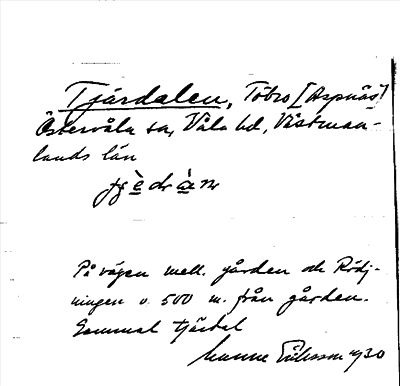 Tjärdalen, Töbro [Aspnäs]
Östervåla sn, Våla hd, Västman-
lands län
På vägen mell. gården och Rödj-
ningen c. 500 m. från gården.
Gammal tjärdal
Manne Eriksson 1930